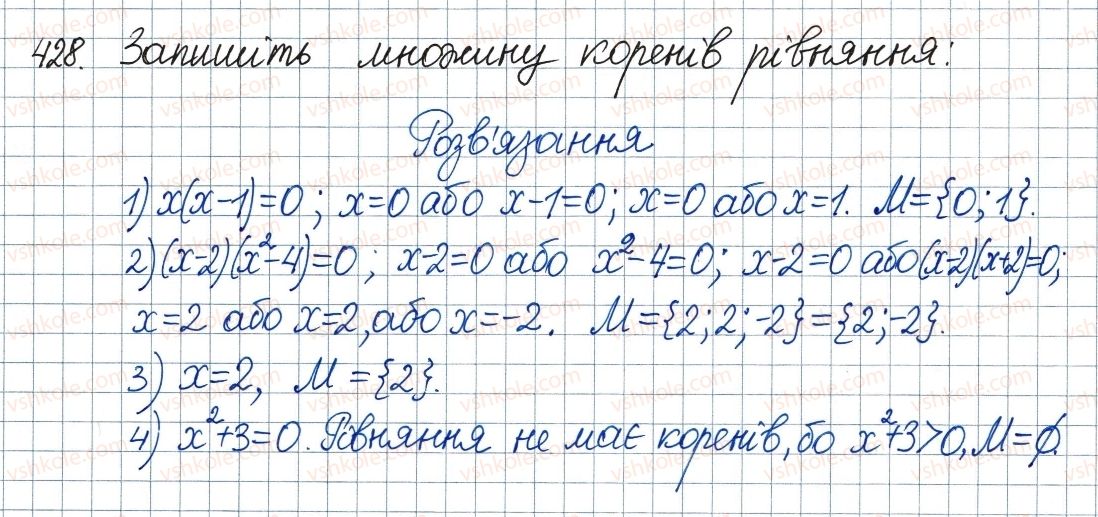 428. Запишіть множину коренів рівняння:
Розв'язання
1) x(x-1)=0; x=0 або x-1=0; x=0 або x=1. M={0;1}.
2) (x-2)(x²-4)=0; x-2=0 або x²-4=0; x-2=0 або (x-2)(x+2)=0;
x=2 або x=2, або x=-2. M={2;2;-2}={2;-2}.
3) x=2, M={2}.
4) x²+3=0. Рівняння не має коренів, бо x²+3>0, M=∅.